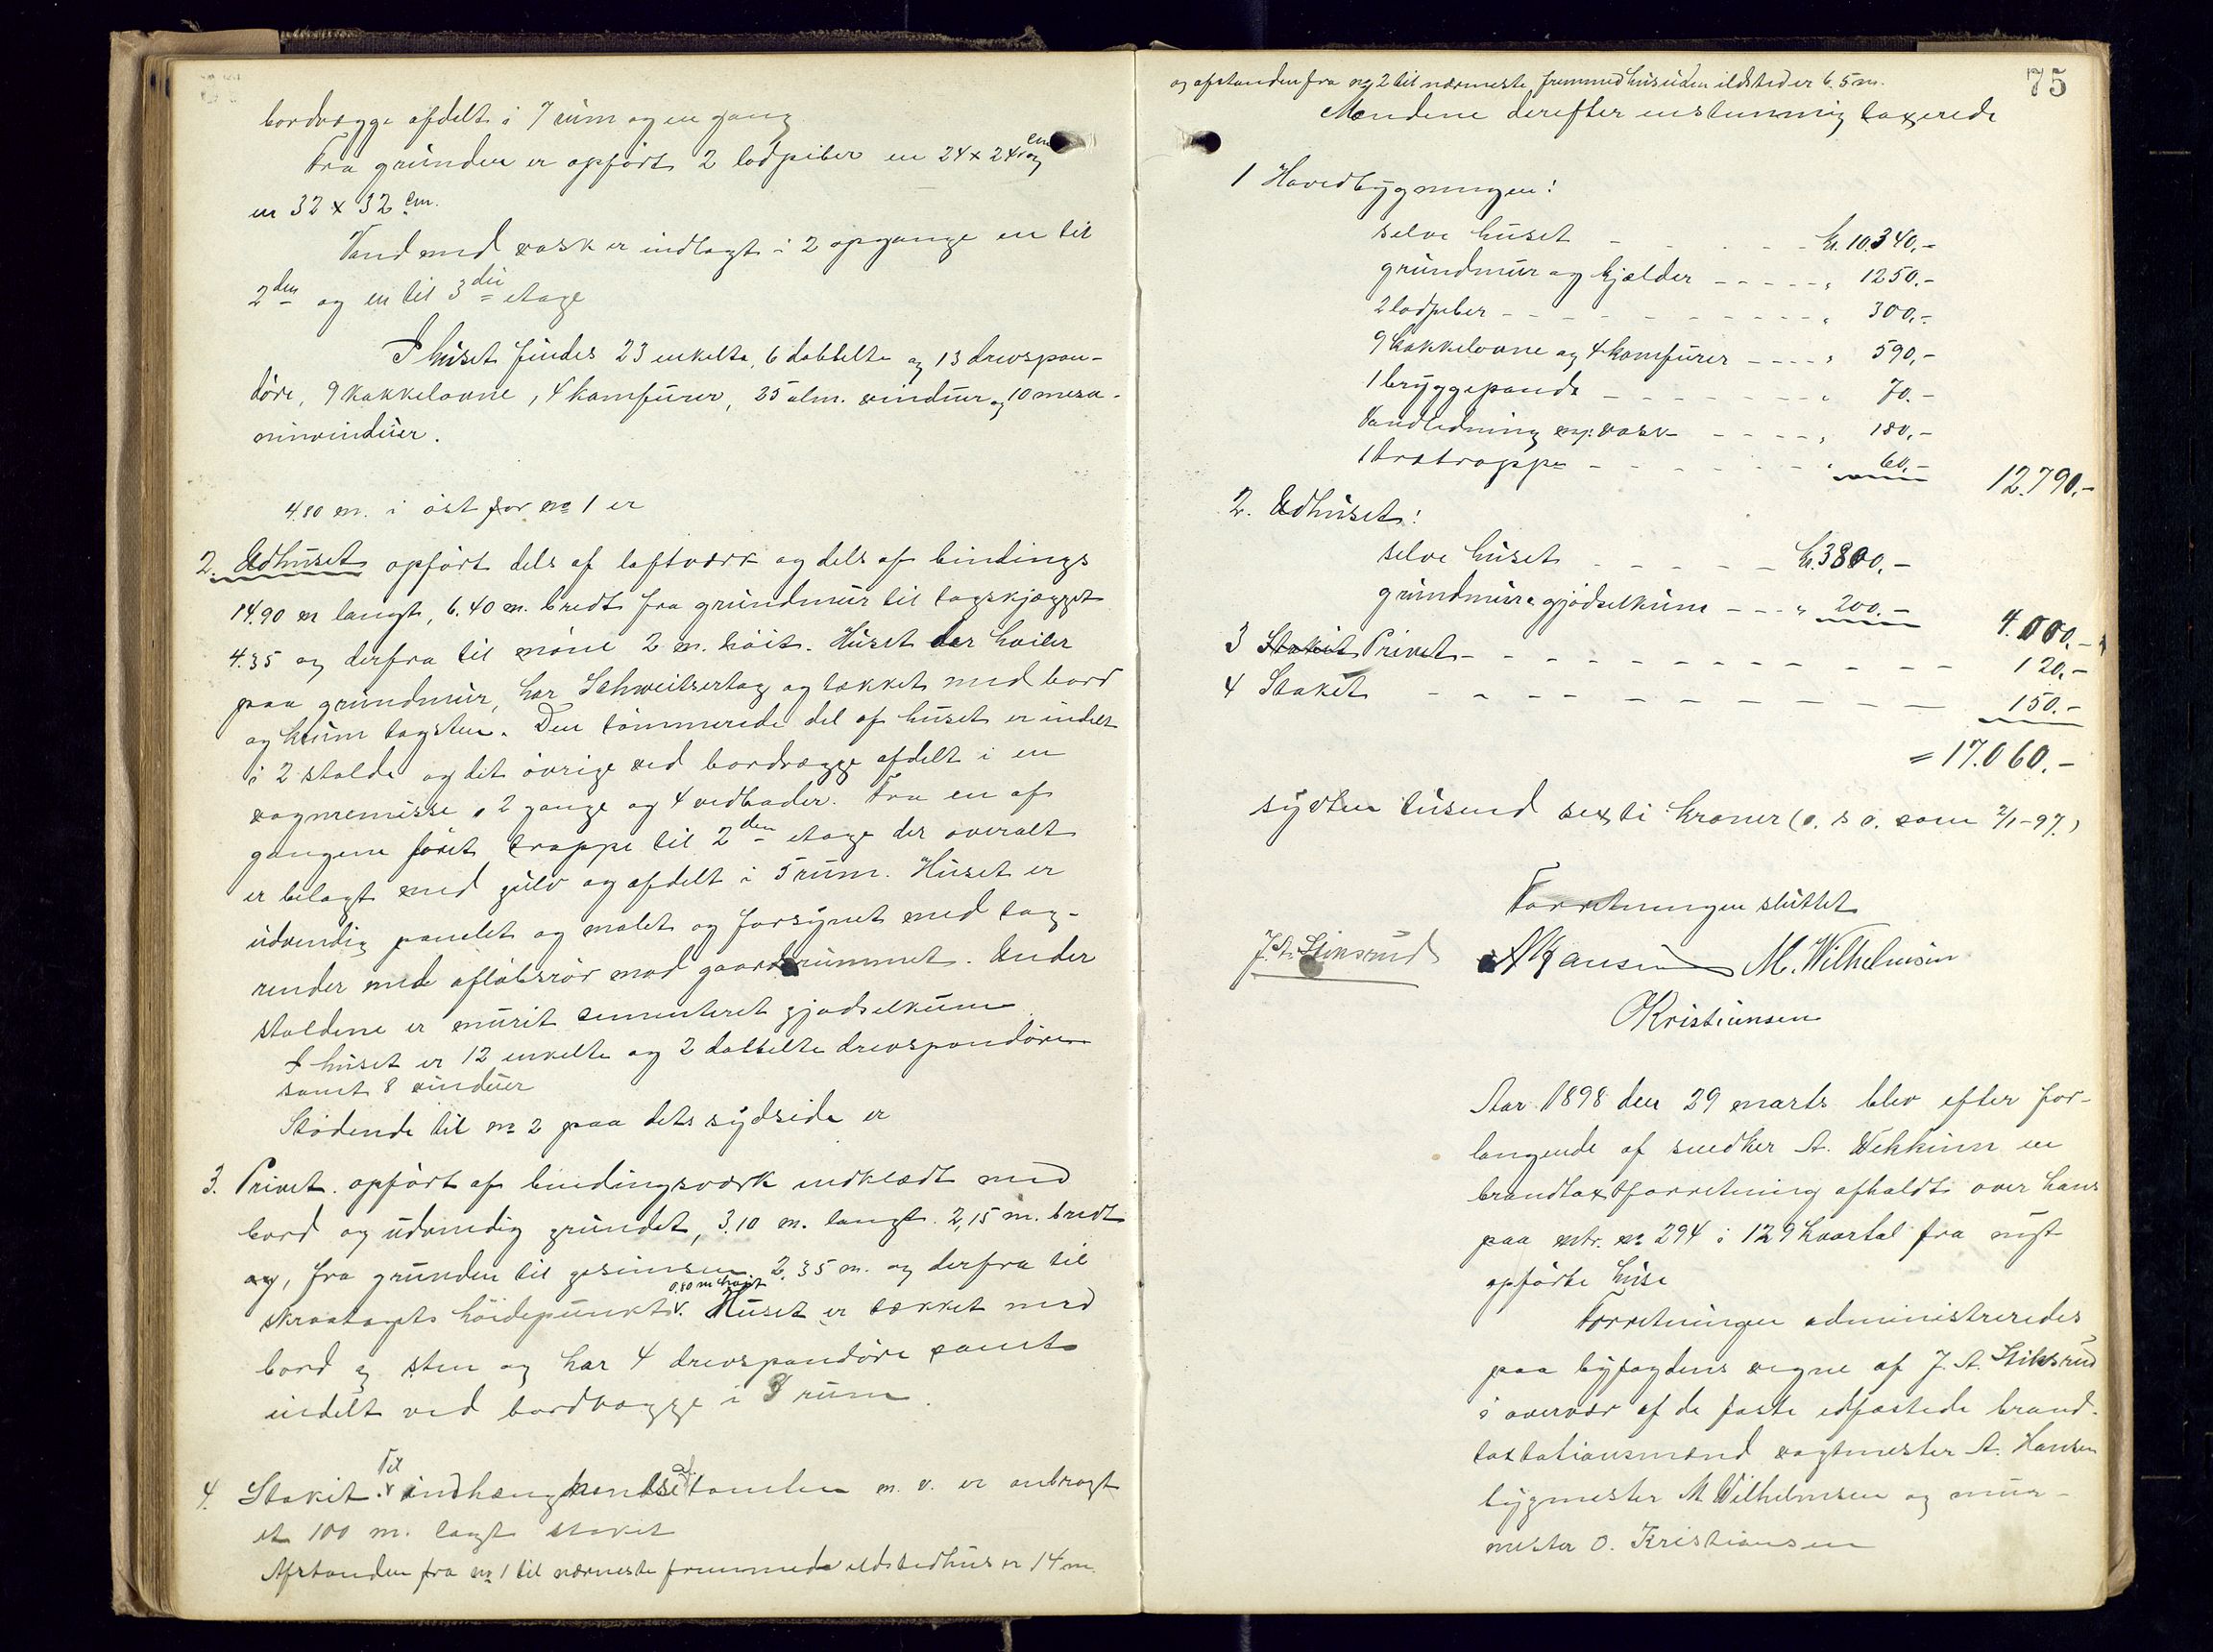 bordvægge afdelt i 7 rum og en gang
Fra grunden er opført 2 lodpiber en 24 x 24 cm og
en 32 x 32 cm.
Vand med vask er indlagt i 2 opgange en til
2den og en til 3die etage
I huset findes 23 enkelte, 6 dobbelte og 13 drevspon-
døre, 9 kakkelovne, 4 komfurer, 25 alm. vinduer og 10 mesa-
ninvinduer.
4.80 m. i øst for no 1 er
2. Udhuset opført dels af laftværk og dels af bindings
14.90 m langt, 6.40 m. bredt fra grundmur til tagskjægget
4.35 og derfra til møne 2 m. høit. Huset der hviler
paa grundmur, har Schweitsertag og tækket med bord
og krum tagsten. Den tømmerede del af huset er indelt
i 2 stalde og det øvrige ved bordvægge afdelt i en
vognremisse, 2 gange og 4 vedboder. Fra en af
gangene fører trappe til 2den etage der overalt
er belagt med gulv og afdelt i 5 rum. Huset er
udvendig panelet og malet og forsynet med tag-
render med afløbsrør mod gaardsrummet. Under
staldene er muret cementeret gjødselkum
I huset er 12 enkelte og 2 dobbelte drevspondøre
samt 8 vinduer
Stødende til no 2 paa dets sydside er
3. Privet opført af bindingsværk indklædt med
bord og udvendig grundet, 3.10 m. langt. 2,15 m. bredt
og, fra grunden til gesimsen 2.35 m. og derfra til
0,80 m høit
skraatagets høidepunkt v. Huset er tækket med
bord og sten og har 4 drevspondøre samt
indelt ved bordvægge i 3 rum.
4. Stakit. Til indhængning af tomten m. v. er anbragt
et 100 m. langt stakit
Afstanden fra no 1 til nærmeste fremmede ildstedhus er 14 m.
75
og afstanden fra no 2 til nærmeste fremmed hus uden ildsted er 6.5 m.
Mændene derefter enstemmig taxerede
1 Hovedbygningen:
selve huset - - - - - kr. 10.340,-
grundmur og kjelder - - - - - " 1250.-
2 lodpiber - - - - - - - - - " 300,-
9 kakkelovne og 4 komfurer - - - - " 590,-
1 bryggepande - - - - - - - " 70.-
Vandledning og vask - - - - " 180,-
1 trætrappe - - - - - - - " 60,- 12.790.-
2. Udhuset:
selve huset - - - - - kr. 3800,-
grundmur & gjødselkum - - - " 200.- 4.000,-
3 Stakit Privet - - - - - - - - - - - 120,-
4 Stakit - - - - - - - - - - - 150.-
= 17.060.-
sytten tusend sexti kroner (o. s v. som 2/1-97.)
Forretningen sluttet
J. A. Stiksrud A Hansen M. Wilhelmsen
O Kristiansen
Aar 1898 den 29 marts blev efter for-
langende af snedker A. Wekkinn en
brandtaxtforretning afholdt over hans
paa mtr. no 294 i 129 kvartal fra nyt
opførte huse
Forretningen administreredes
paa byfogdens vegne af J. A. Stiksrud
i overvær af de faste edfæstede brand-
taxtationsmænd vagtmester A. Hansen
bygmester M Wilhelmsen og mur-
mester O. Kristiansen